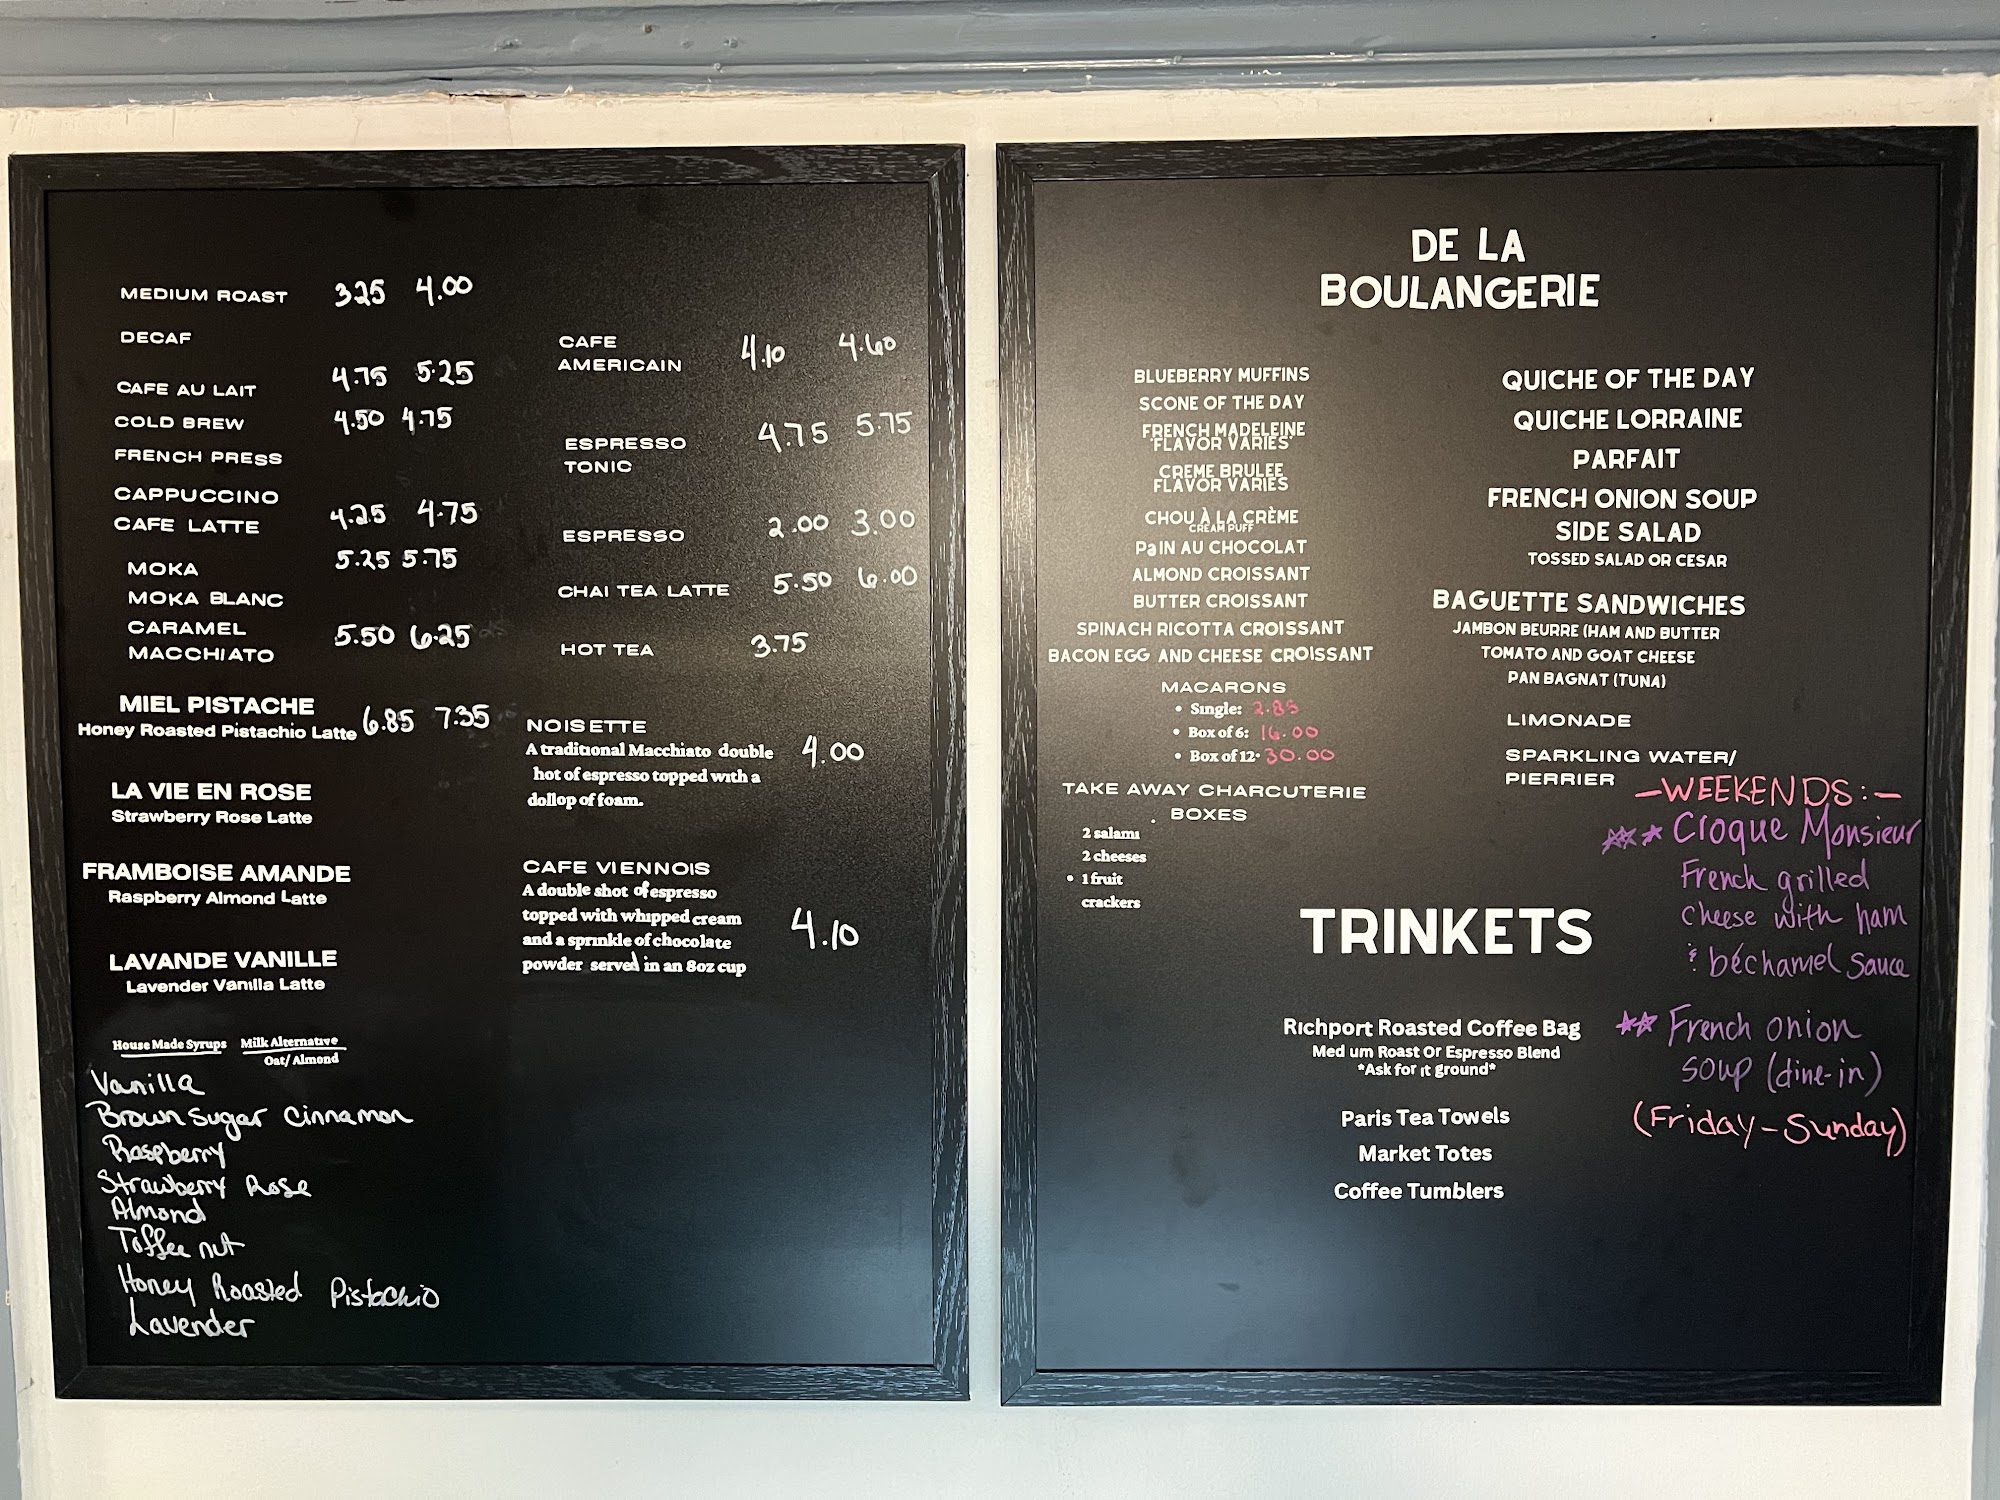 MEDIUM ROAST 3.25 4.00
DECAF
CAFE AU LAIT 4.75 5.25
COLD BREW 4.50 4.75
FRENCH PRESS
CAPPUCCINO
CAFE LATTE 4.25 4.75
MOKA 5.25 5.75
MOKA BLANC
CARAMEL
MACCHIATO 5.50 6.25
MIEL PISTACHE
Honey Roasted Pistachio Latte 6.85 7.35
LA VIE EN ROSE
Strawberry Rose Latte
FRAMBOISE AMANDE
Raspberry Almond Latte
LAVANDE VANILLE
Lavender Vanilla Latte
House Made Syrups
Vanilla
Brown Sugar Cinnamon
Raspberry
Strawberry Rose
Almond
Toffee nut
Honey Roasted Pistachio
Lavender
Milk Alternative
Oat/Almond
CAFE
AMERICAIN 4.10 4.60
ESPRESSO
TONIC 4.75 5.75
ESPRESSO 2.00 3.00
CHAI TEA LATTE 5.50 6.00
HOT TEA 3.75
NOISETTE
A traditional Macchiato double
hot of espresso topped with a
dollop of foam.
4.00
CAFE VIENNOIS
A double shot of espresso
topped with whipped cream
and a sprinkle of chocolate
powder served in an 8oz cup
4.10
DE LA
BOULANGERIE
BLUEBERRY MUFFINS
SCONE OF THE DAY
FRENCH MADELEINE
"FLAVOR VARIES"
CREME BRULEE
FLAVOR VARIES
CHOU À LA CRÈME
CREAM PUFF
PaIN AU CHOCOLAT
ALMOND CROISSANT
BUTTER CROISSANT
SPINACH RICOTTA CROISSANT
BACON EGG AND CHEESE CROISSANT
MACARONS
• Single: 2.85
• Box of 6: 16.00
• Box of 12: 30.00
TAKE AWAY CHARCUTERIE
BOXES
2 salami
2 cheeses
• 1 fruit
crackers
QUICHE OF THE DAY
QUICHE LORRAINE
PARFAIT
FRENCH ONION SOUP
SIDE SALAD
TOSSED SALAD OR CESAR
BAGUETTE SANDWICHES
JAMBON BEURRE (HAM AND BUTTER
TOMATO AND GOAT CHEESE
PAN BAGNAT (TUNA)
LIMONADE
SPARKLING WATER/
PIERRIER
—WEEKENDS:—
☆☆★ Croque Monsieur
French grilled
cheese with ham
& béchamel sauce
★☆ French onion
soup (dine-in)
(Friday – Sunday)
TRINKETS
Richport Roasted Coffee Bag
Med um Roast Or Espresso Blend
*Ask for it ground*
Paris Tea Towels
Market Totes
Coffee Tumblers